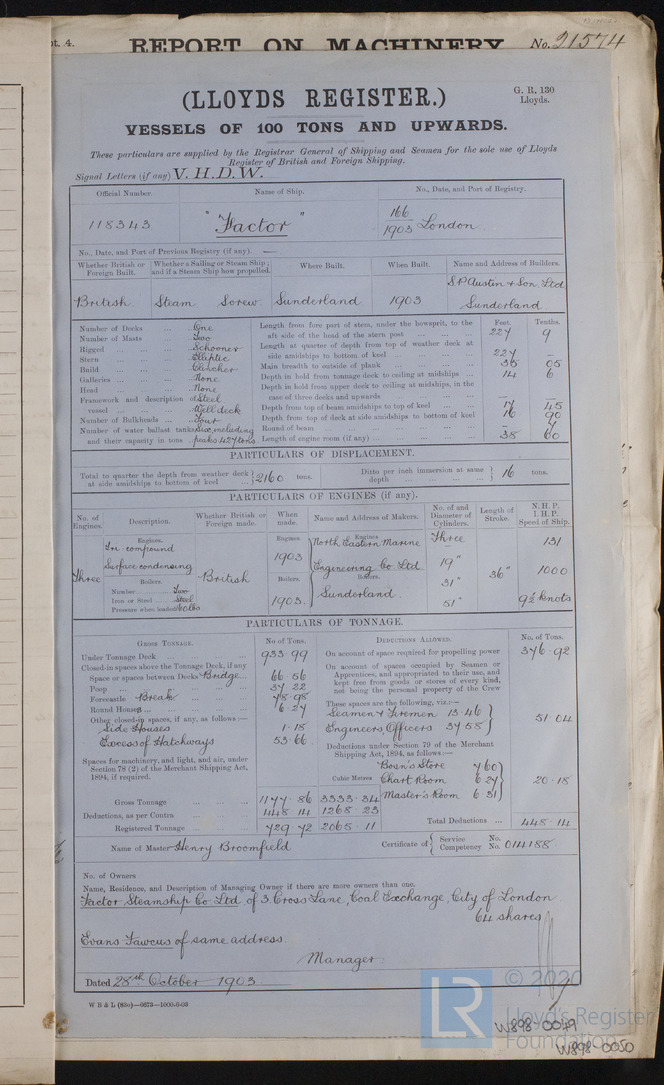 pt. 4.
REPORT ON MACHINERY No. 21574
G. R. 130
Lloyds.
(LLOYDS REGISTER.)
VESSELS OF 100 TONS AND UPWARDS.
These particulars are supplied by the Registrar General of Shipping and Seamen for the sole use of Lloyds
Register of British and Foreign Shipping.
Signal Letters (if any) V. H. D. W.
Official Number. Name of Ship. No., Date, and Port of Registry.
118343 "Factor" 166/1903 London
No., Date, and Port of Previous Registry (if any). —
Whether British or Foreign Built. Whether a Sailing or Steam Ship; and if a Steam Ship how propelled. Where Built. When Built. Name and Address of Builders.
British Steam Screw Sunderland 1903 S P Austin & Son Ltd Sunderland
Number of Decks One
Number of Masts Two
Rigged Schooner
Stern Elliptic
Build Clincher
Galleries None
Head None
Framework and description of vessel Steel Well deck
Number of Bulkheads Four
Number of water ballast tanks Six, including
and their capacity in tons peaks 427 tons
Feet. Tenths.
Length from fore part of stem, under the bowsprit, to the
aft side of the head of the stern post 227 9
Length at quarter of depth from top of weather deck at
side amidships to bottom of keel 227 —
Main breadth to outside of plank 36 05
Depth in hold from tonnage deck to ceiling at midships 14 6
Depth in hold from upper deck to ceiling at midships, in the
case of three decks and upwards — —
Depth from top of beam amidships to top of keel 17 45
Depth from top of deck at side amidships to bottom of keel 16 90
Round of beam — 7
Length of engine room (if any) 38 60
PARTICULARS OF DISPLACEMENT.
Total to quarter the depth from weather deck at side amidships to bottom of keel 2160 tons. Ditto per inch immersion at same depth 16 tons.
PARTICULARS OF ENGINES (if any).
No. of Engines. Description. Whether British or Foreign made. When made. Name and Address of Makers. No. of and Diameter of Cylinders. Length of Stroke. N. H. P. I. H. P. Speed of Ship.
Engines. Engines Engines
Tri compound North Eastern Marine Three 131
Surface condensing 1903 Engineering Co Ltd 19" 36" 1000
Three Boilers. British Boilers. Boilers. 31"
Number Two Sunderland.
Iron or Steel Steel 1903. 51" 9½ knots
Pressure when loaded 160 lbs
PARTICULARS OF TONNAGE.
GROSS TONNAGE. No of Tons. DEDUCTIONS ALLOWED. No. of Tons.
Under Tonnage Deck 933.99
Closed-in spaces above the Tonnage Deck, if any
Space or spaces between Decks Bridge 66 56
Poop 37 22
Forecastle Break 78.98
Round Houses 6.27
Other closed-in spaces, if any, as follows:—
Side Houses 1.18
Excess of Hatchways 53.66
Spaces for machinery, and light, and air, under
Section 78 (2) of the Merchant Shipping Act,
1894, if required.
Cubic Metres
Gross Tonnage 1177.86 3333.34
Deductions, as per Contra 448.14 1268.23
Registered Tonnage 729.72 2065.11
On account of space required for propelling power 376.92
On account of spaces occupied by Seamen or
Apprentices, and appropriated to their use, and
kept free from goods or stores of every kind,
not being the personal property of the Crew
These spaces are the following, viz.:—
Seamen & Firemen 13.46
Engineers Officers 37.58 51 04
Deductions under Section 79 of the Merchant
Shipping Act, 1894, as follows:—
Bosn's Store 7.60
Chart Room 6.27 20.18
Master's Room 6.31
Total Deductions 448.14
Name of Master Henry Broomfield Certificate of Service No. Competency No. 014188
No. of Owners
Name, Residence, and Description of Managing Owner if there are more owners than one.
Factor Steamship Co Ltd of 3 Cross Lane, Coal Exchange, City of London
64 shares
Evans Fawcus of same address.
Manager.
Dated 28th October 1903.
W B & L (83o)—6673—1000-6-03
LR © 2020
Lloyd's Register
Foundation
W898-0049
W898-0050